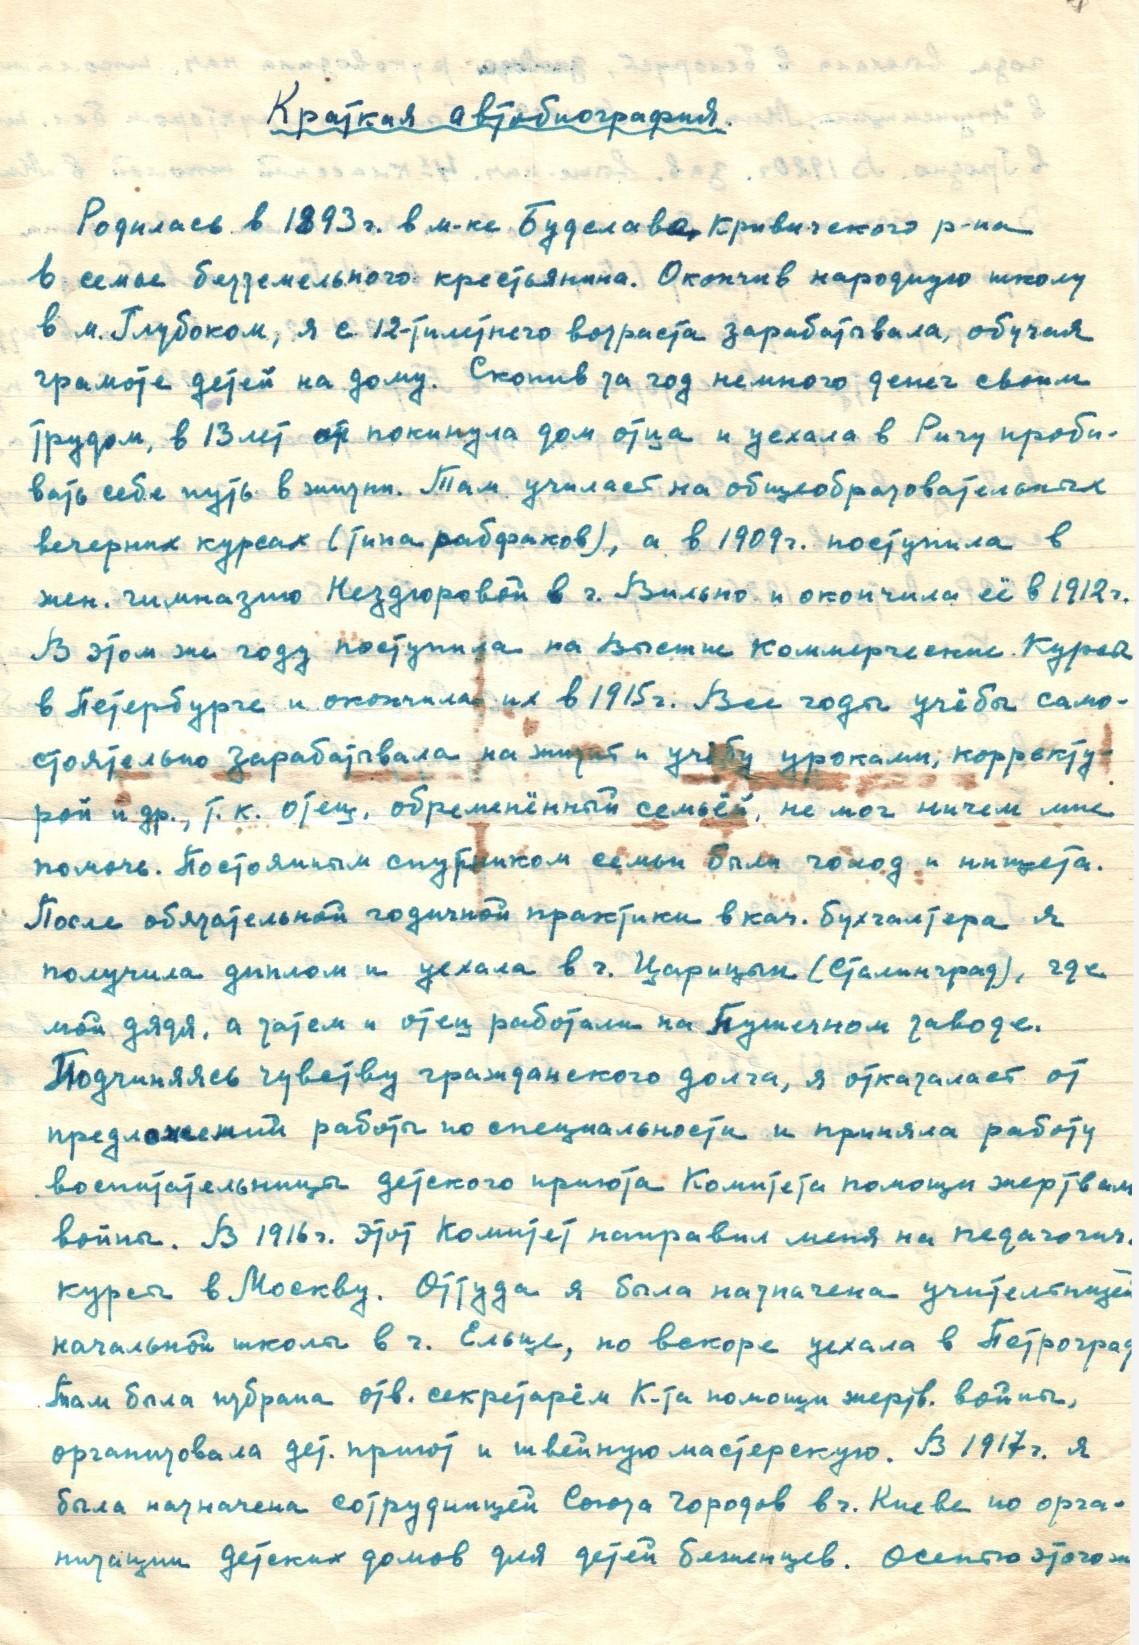 Краткая автобиография.
Родилась в 1893г. в м-ке Будслава, Кривичского р-на
в семье безземельного крестьянина. Окончив народную школу
в м. Глубоком, я с 12-тилетнего возраста зарабатывала, обучая
грамоте детей на дому. Скопив за год немного денег своим
трудом, в 13 лет покинула дом отца и уехала в Ригу проби-
вать себе путь в жизни. Там училась на общеобразовательных
вечерних курсах (типа рабфаков), а в 1909г. поступила в
жен. гимназию Нездюровой в г. Вильно и окончила её в 1912г.
В этом же году поступила на Высшие Коммерческие Курсы
в Петербурге и окончила их в 1915г. Все годы учёбы само-
стоятельно зарабатывала на жизнь и учёбу уроками, корректу-
рой и др., т.к. отец, обременённый семьёй, не мог ничем мне
помочь. Постоянным спутником семьи были голод и нищета.
После обязательной годичной практики в кач. бухгалтера я
получила диплом и уехала в г. Царицын (Сталинград), где
мой дядя, а затем и отец работали на Пушечном заводе.
Подчиняясь чувству гражданского долга, я отказалась от
предложений работы по специальности и приняла работу
воспитательницы детского приюта Комитета помощи жертвам
войны. В 1916г. этот Комитет направил меня на педагогич.
курсы в Москву. Оттуда я была назначена учительницей
начальной школы в г. Ельце, но вскоре уехала в Петроград
Там была избрана отв. секретарём К-та помощи жертв. войны,
организовала дет. приют и швейную мастерскую. В 1917г. я
была назначена сотрудницей Союза Городов в г. Киеве по орга-
низации детских домов для детей беженцев. Осенью этого ж